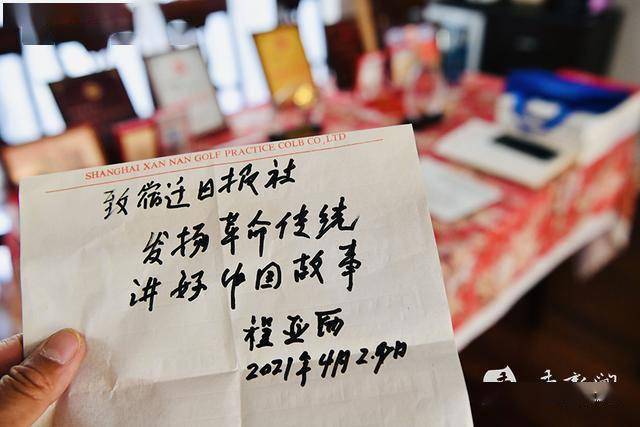 SHANGHAI XAN NAN GOLF PRACTICE COLB CO., LTD
致宿迁日报社
发扬革命传统
讲好中国故事
程亚西
2021年4月2.9日